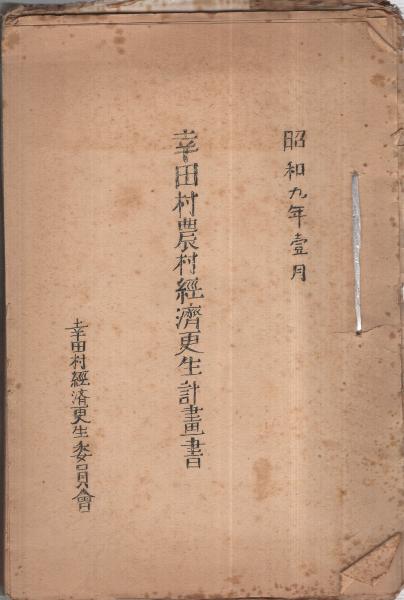 昭和九年壹月
幸田村農村經濟更生計畫書
幸田村經濟更生委員會